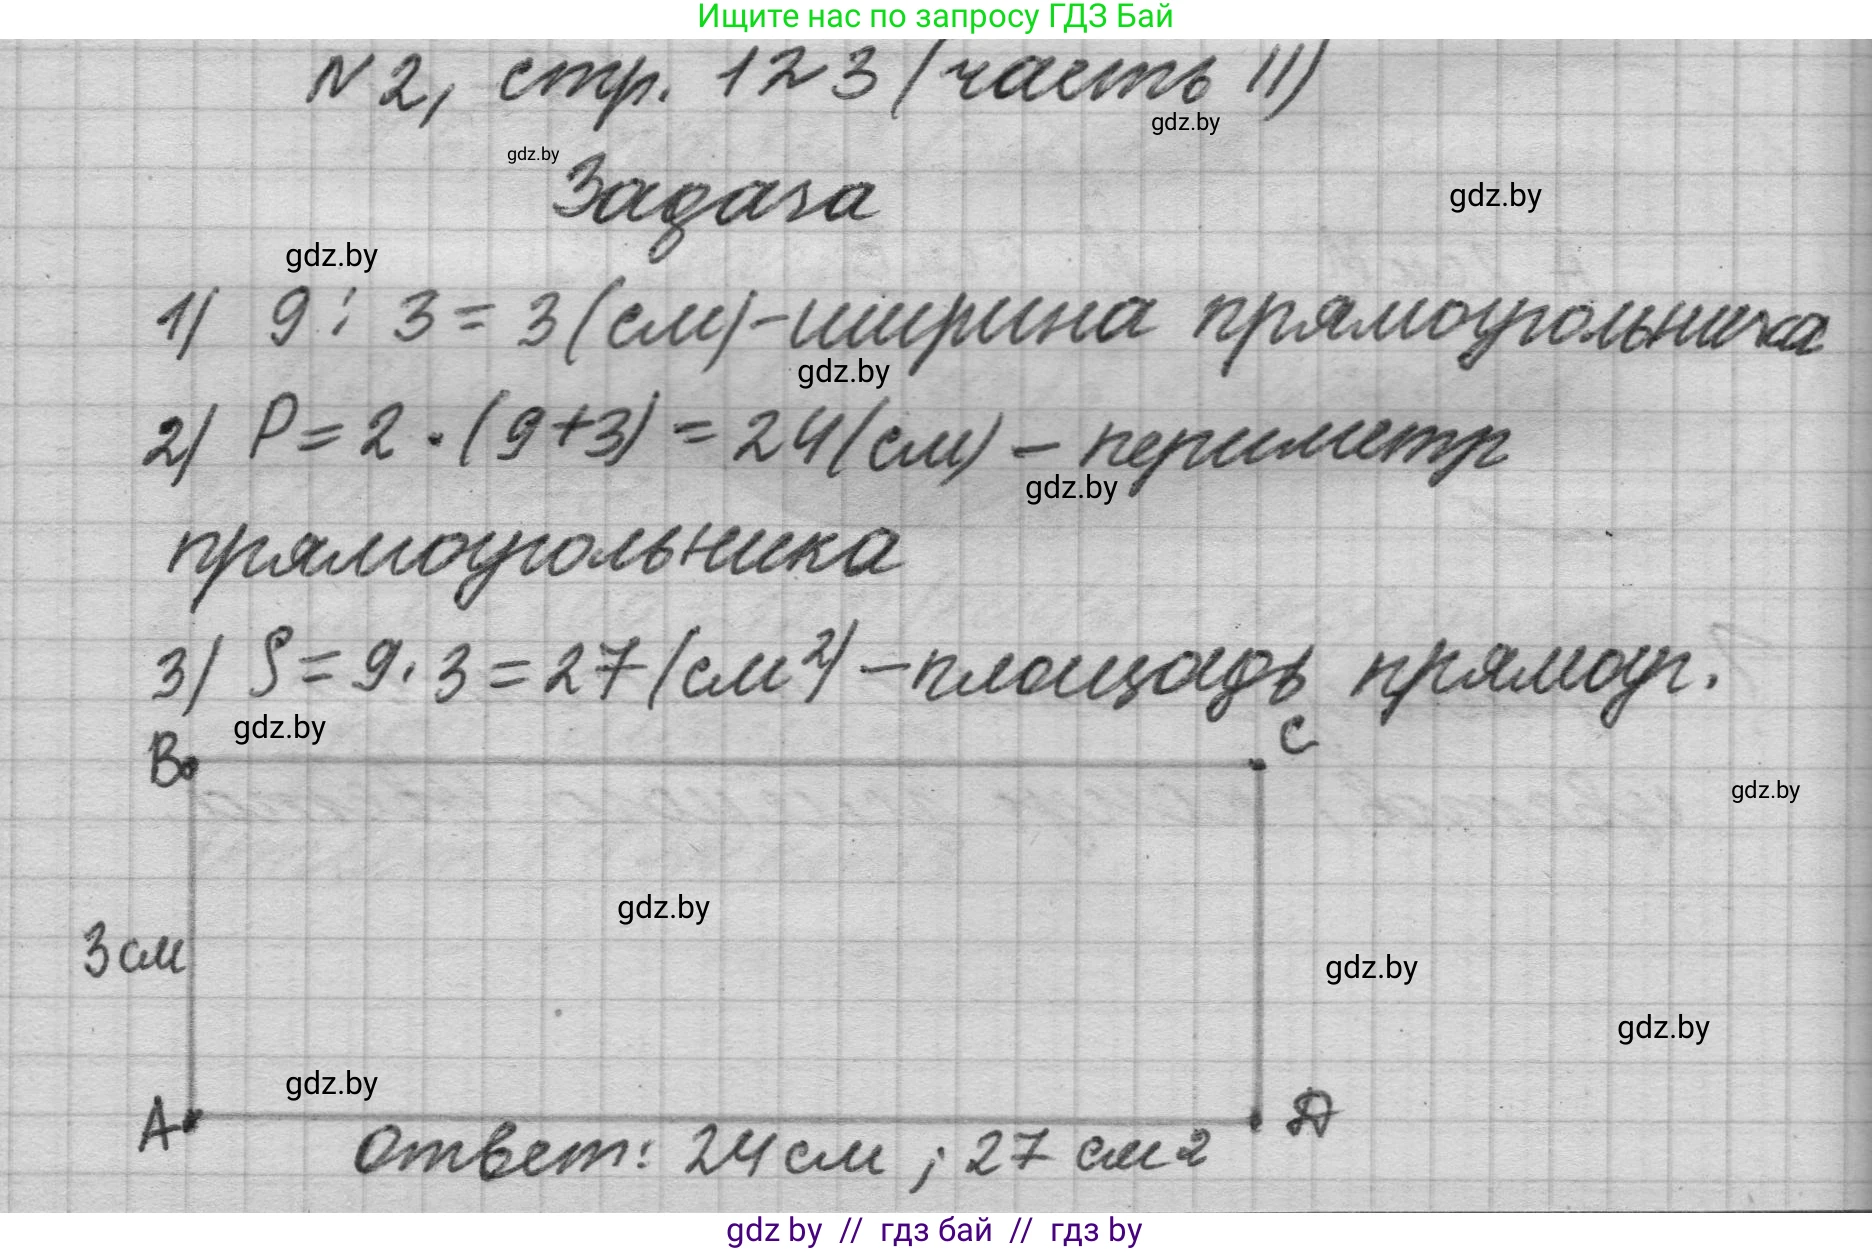 Ищите нас по запросу ГДЗ Бай
N2, стр. 123 (часть II)
gdz.by
gdz.by
Задача
gdz.by
gdz.by
1) 9 : 3 = 3 (см) - ширина прямоугольника
gdz.by
2) P = 2 · (9+3) = 24 (см) - периметр
gdz.by
прямоугольника
3) S = 9 · 3 = 27 (см²) - площадь прямоуг.
gdz.by
B
C
gdz.by
gdz.by
3 см
gdz.by
gdz.by
gdz.by
A
Д
Ответ: 24 см ; 27 см²
gdz by // гдз бай // гдз by